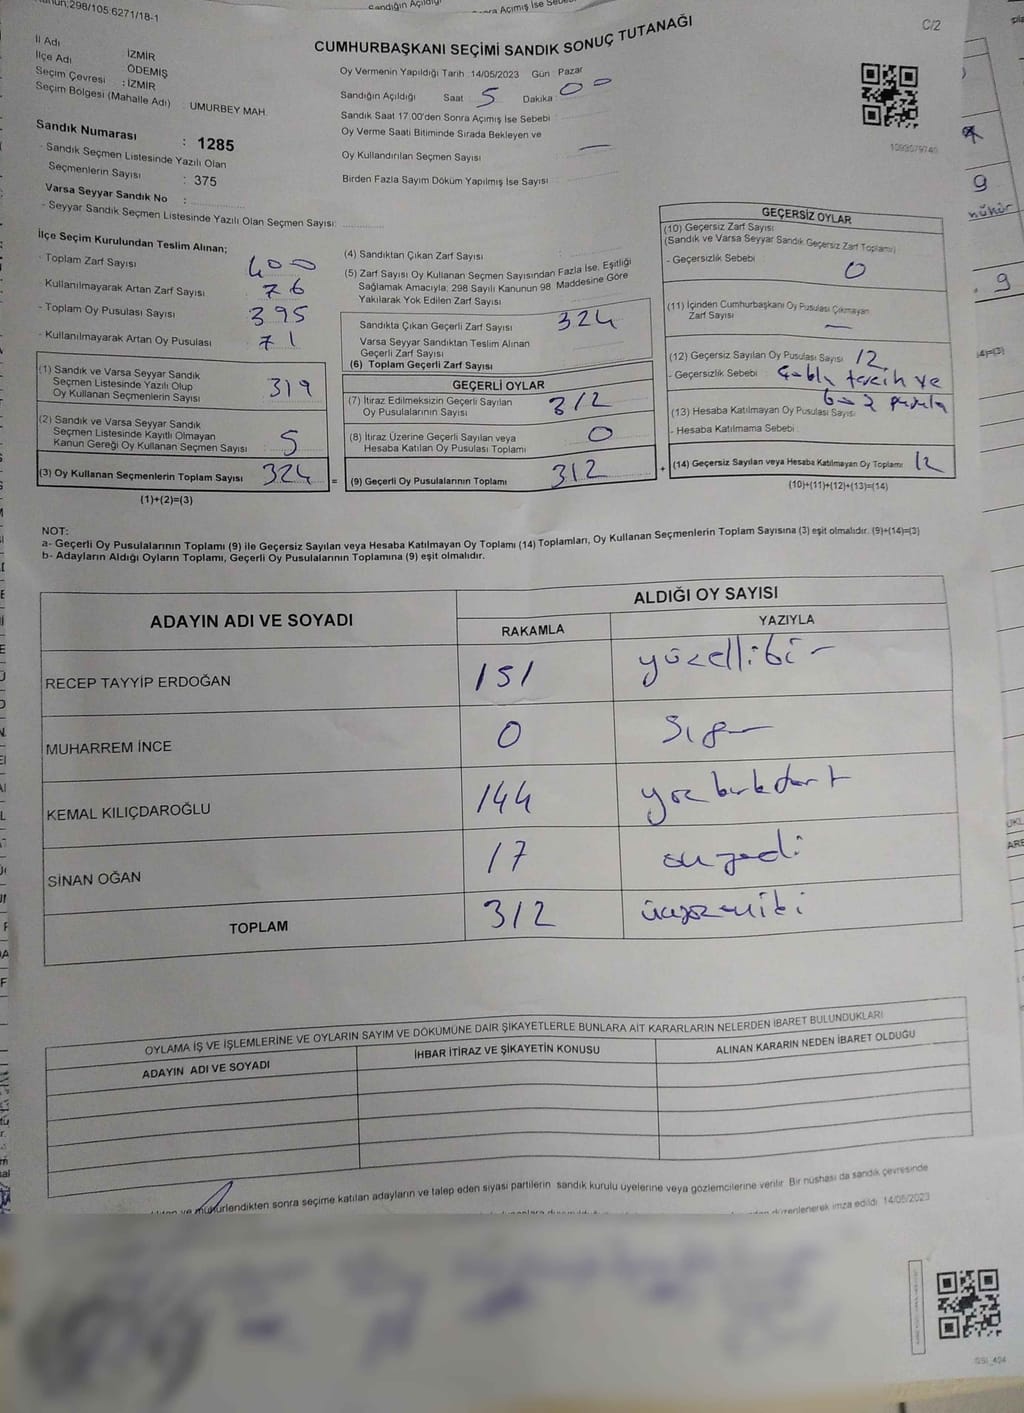 298/105 6271/18-1
C/2
CUMHURBAŞKANI SEÇİMİ SANDIK SONUÇ TUTANAĞI
İl Adı İZMİR
İlçe Adı ÖDEMİŞ
Seçim Çevresi : İZMİR
Seçim Bölgesi (Mahalle Adı) : UMURBEY MAH.
Sandık Numarası : 1285
- Sandık Seçmen Listesinde Yazılı Olan
Seçmenlerin Sayısı : 375
Varsa Seyyar Sandık No :
- Seyyar Sandık Seçmen Listesinde Yazılı Olan Seçmen Sayısı:
Oy Vermenin Yapıldığı Tarih : 14/05/2023 Gün : Pazar
Sandığın Açıldığı Saat : 5 Dakika : 00
Sandık Saat 17.00'den Sonra Açımış İse Sebebi :
Oy Verme Saati Bitiminde Sırada Bekleyen ve
Oy Kullandırılan Seçmen Sayısı : —
Birden Fazla Sayım Döküm Yapılmış İse Sayısı :
1093079740
İlçe Seçim Kurulundan Teslim Alınan;
- Toplam Zarf Sayısı 400
Kullanılmayarak Artan Zarf Sayısı 76
- Toplam Oy Pusulası Sayısı 395
- Kullanılmayarak Artan Oy Pusulası 71
(1) Sandık ve Varsa Seyyar Sandık
Seçmen Listesinde Yazılı Olup
Oy Kullanan Seçmenlerin Sayısı 319
(2) Sandık ve Varsa Seyyar Sandık
Seçmen Listesinde Kayıtlı Olmayan
Kanun Gereği Oy Kullanan Seçmen Sayısı 5
(3) Oy Kullanan Seçmenlerin Toplam Sayısı 324
(1)+(2)=(3)
(4) Sandıktan Çıkan Zarf Sayısı :
(5) Zarf Sayısı Oy Kullanan Seçmen Sayısından Fazla İse, Eşitliği
Sağlamak Amacıyla; 298 Sayılı Kanunun 98. Maddesine Göre
Yakılarak Yok Edilen Zarf Sayısı
Sandıkta Çıkan Geçerli Zarf Sayısı 324
Varsa Seyyar Sandıktan Teslim Alınan
Geçerli Zarf Sayısı
(6) Toplam Geçerli Zarf Sayısı
GEÇERLİ OYLAR
(7) İtiraz Edilmeksizin Geçerli Sayılan
Oy Pusulalarının Sayısı 312
(8) İtiraz Üzerine Geçerli Sayılan veya
Hesaba Katılan Oy Pusulası Toplamı 0
= (9) Geçerli Oy Pusulalarının Toplamı 312
GEÇERSİZ OYLAR
(10) Geçersiz Zarf Sayısı
(Sandık ve Varsa Seyyar Sandık Geçersiz Zarf Toplamı)
- Geçersizlik Sebebi : 0
(11) İçinden Cumhurbaşkanı Oy Pusulası Çıkmayan
Zarf Sayısı —
(12) Geçersiz Sayılan Oy Pusulası Sayısı 12
- Geçersizlik Sebebi : Çoklu tercih ve
boş pusula
(13) Hesaba Katılmayan Oy Pusulası Sayısı
- Hesaba Katılmama Sebebi :
+ (14) Geçersiz Sayılan veya Hesaba Katılmayan Oy Toplamı 12
(10)+(11)+(12)+(13)=(14)
NOT:
a- Geçerli Oy Pusulalarının Toplamı (9) ile Geçersiz Sayılan veya Hesaba Katılmayan Oy Toplamı (14) Toplamları, Oy Kullanan Seçmenlerin Toplam Sayısına (3) eşit olmalıdır. (9)+(14)=(3)
b- Adayların Aldığı Oyların Toplamı, Geçerli Oy Pusulalarının Toplamına (9) eşit olmalıdır.
ADAYIN ADI VE SOYADI
ALDIĞI OY SAYISI
RAKAMLA YAZIYLA
RECEP TAYYİP ERDOĞAN 151 yüzellibir
MUHARREM İNCE 0 Sıfır
KEMAL KILIÇDAROĞLU 144 yüzkırkdört
SİNAN OĞAN 17 onyedi
TOPLAM 312 üçyüzoniki
OYLAMA İŞ VE İŞLEMLERİNE VE OYLARIN SAYIM VE DÖKÜMÜNE DAİR ŞİKAYETLERLE BUNLARA AİT KARARLARIN NELERDEN İBARET BULUNDUKLARI
ADAYIN ADI VE SOYADI İHBAR İTİRAZ VE ŞİKAYETİN KONUSU ALINAN KARARIN NEDEN İBARET OLDUĞU
ve mühürlendikten sonra seçime katılan adayların ve talep eden siyasi partilerin sandık kurulu üyelerine veya gözlemcilerine verilir. Bir nüshası da sandık çevresinde
düzenlenerek imza edildi. 14/05/2023